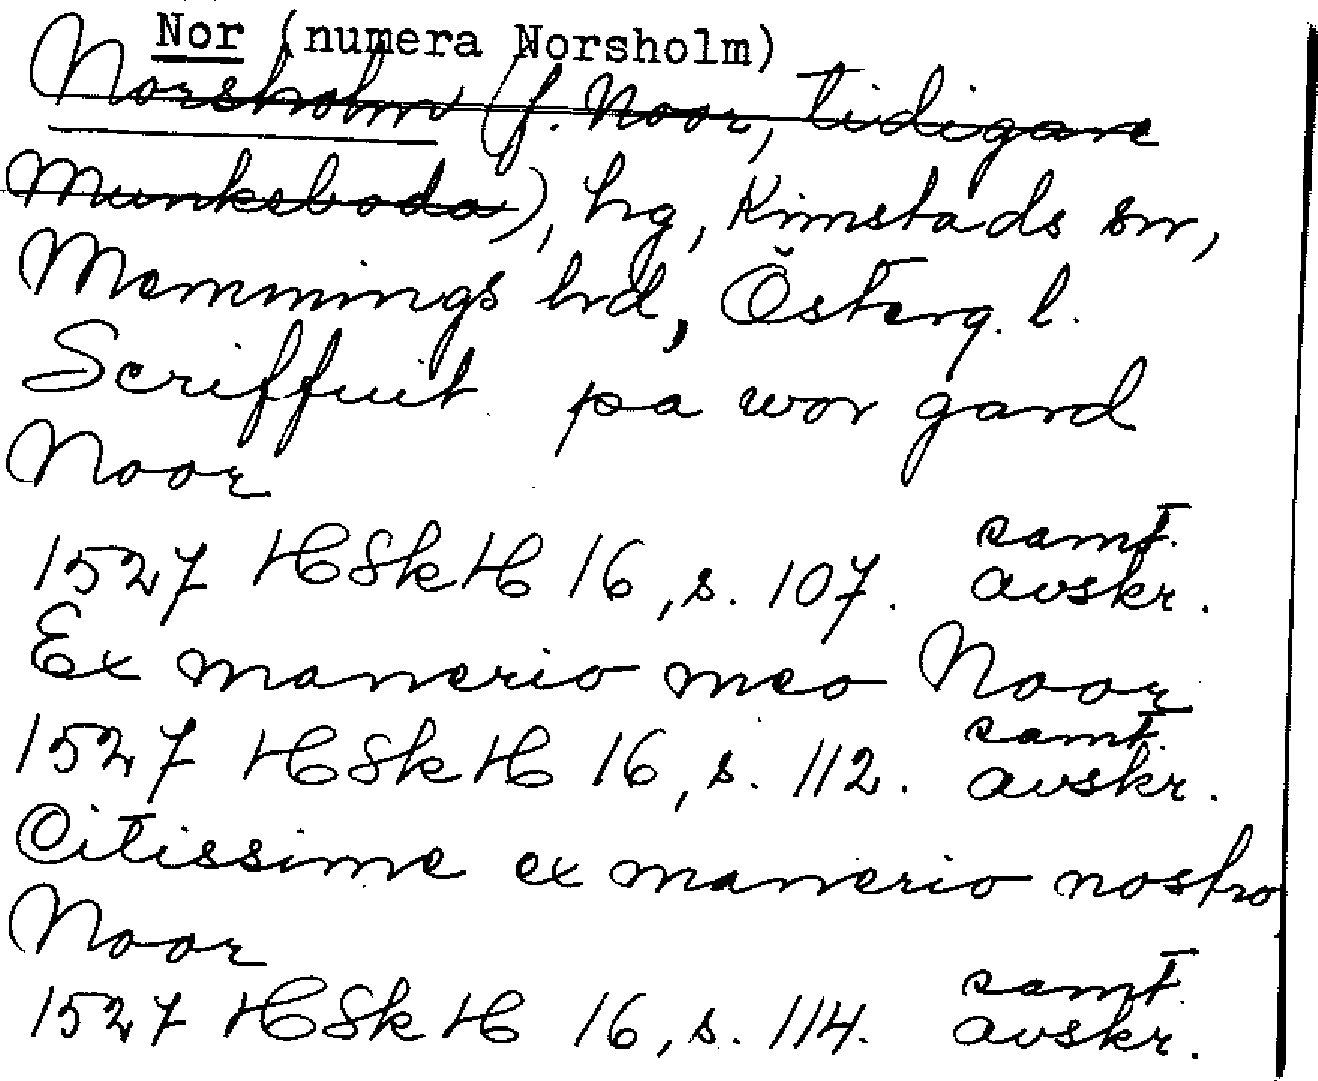 Nor (numera Norsholm)
Norsholm (f. Noor, tidigare
Munkeboda), hg, Kimstads sn,
Memmings hrd, Österg. l.
Scriffuit pa wor gard
Noor
1527 HSkH 16, s. 107. samt. avskr.
Ex manerio meo Noor
1527 HSkH 16, s. 112. samt. avskr.
Citissime ex manerio nostro
Noor
1527 HSkH 16, s. 114. samt. avskr.